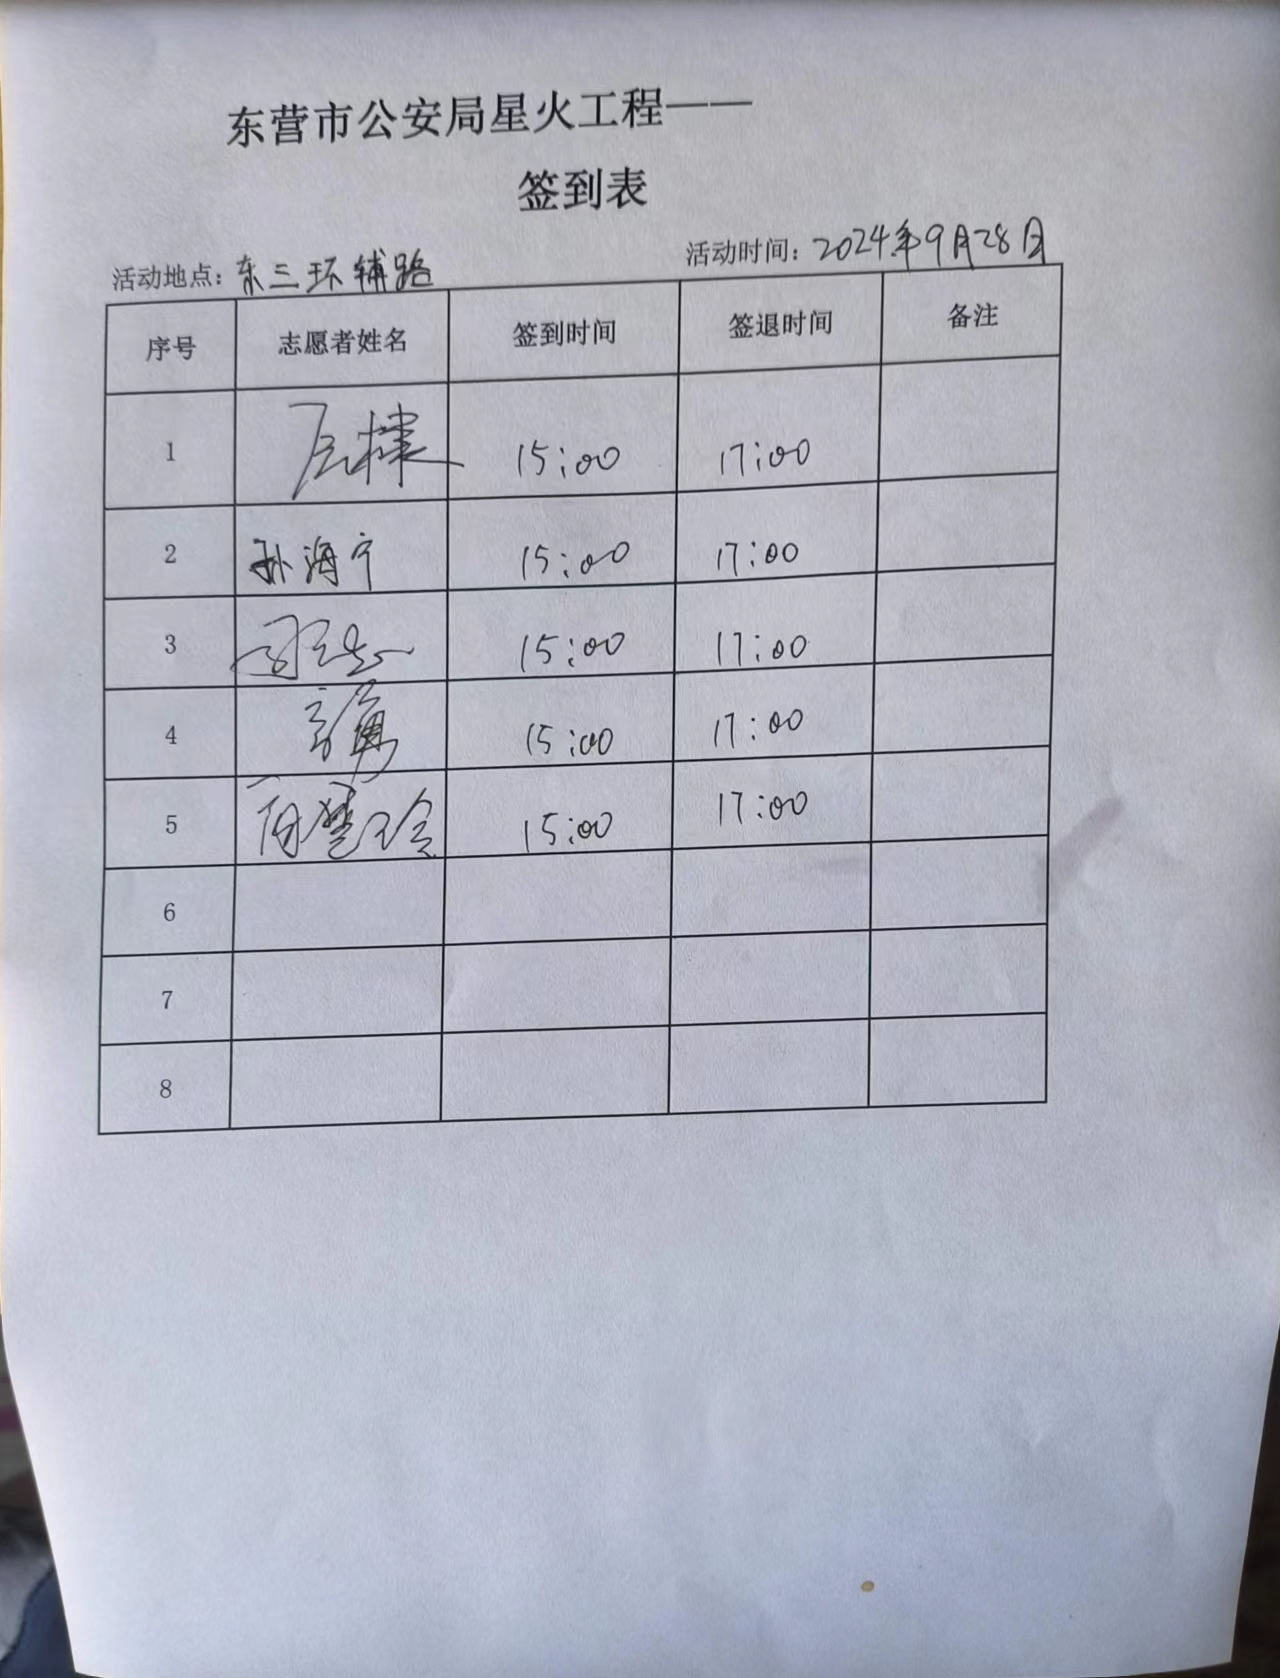 东营市公安局星火工程——
签到表
活动地点：东三环辅路 活动时间：2024年9月28日
序号 志愿者姓名 签到时间 签退时间 备注
1 15:00 17:00
2 孙海宁 15:00 17:00
3 15:00 17:00
4 15:00 17:00
5 15:00 17:00
6
7
8